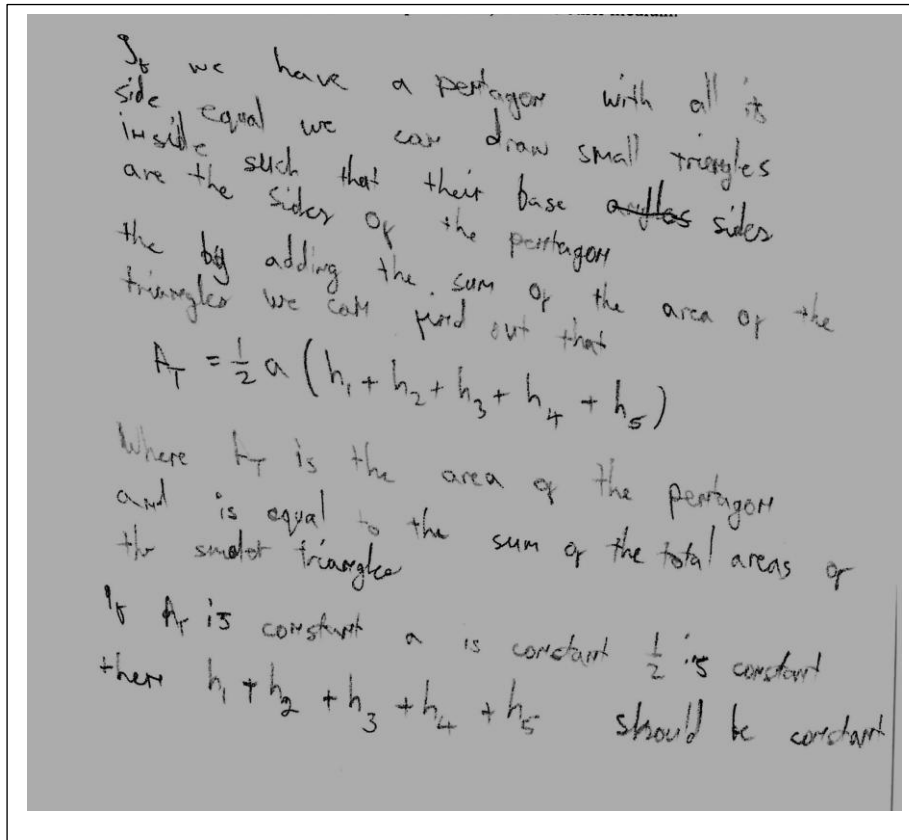 If we have a pentagon with all its
side equal we can draw small triangles
inside such that their base angles sides
are the sides of the pentagon
the by adding the sum of the area of the
triangles we can find out that
A_T = 1/2 a (h_1 + h_2 + h_3 + h_4 + h_5)
Where A_T is the area of the pentagon
and is equal to the sum of the total areas of
the triangles
If A_T is constant a is constant 1/2 is constant
then h_1 + h_2 + h_3 + h_4 + h_5 should be constant